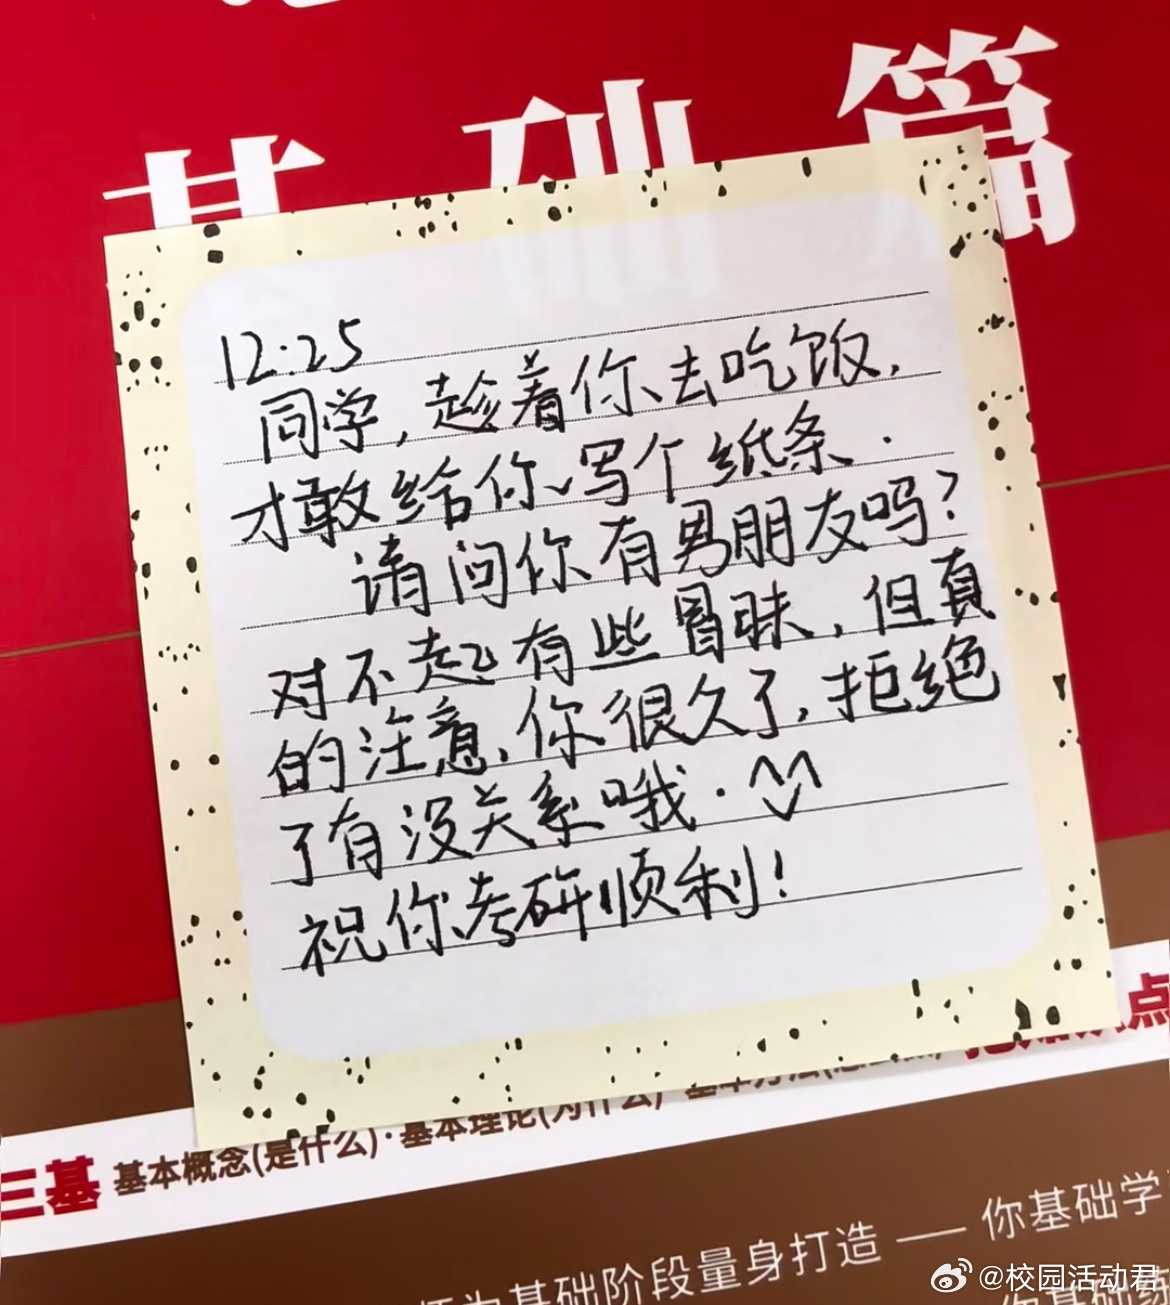 基础篇
12:25
同学,趁着你去吃饭,
才敢给你写个纸条.
请问你有男朋友吗?
对不起有些冒昧,但真
的注意,你很久了,拒绝
了有没关系哦.
祝你考研顺利!
三基 基本概念(是什么)·基本理论(为什么)·基本方法
点
基础阶段量身打造 —— 你基础学
你基础
@校园活动君